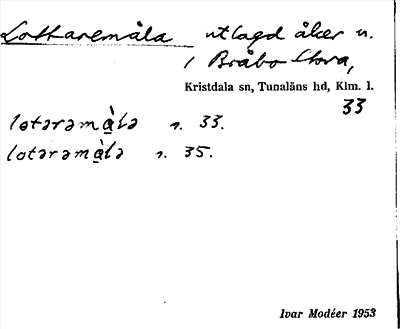 Lottaremåla utlagd åker u.
i Bråbo Stora,
Kristdala sn, Tunaläns hd, Klm. l.
33
lotərəmå̀lə n. 33.
lotərəmå̀lə n. 35.
Ivar Modéer 1953